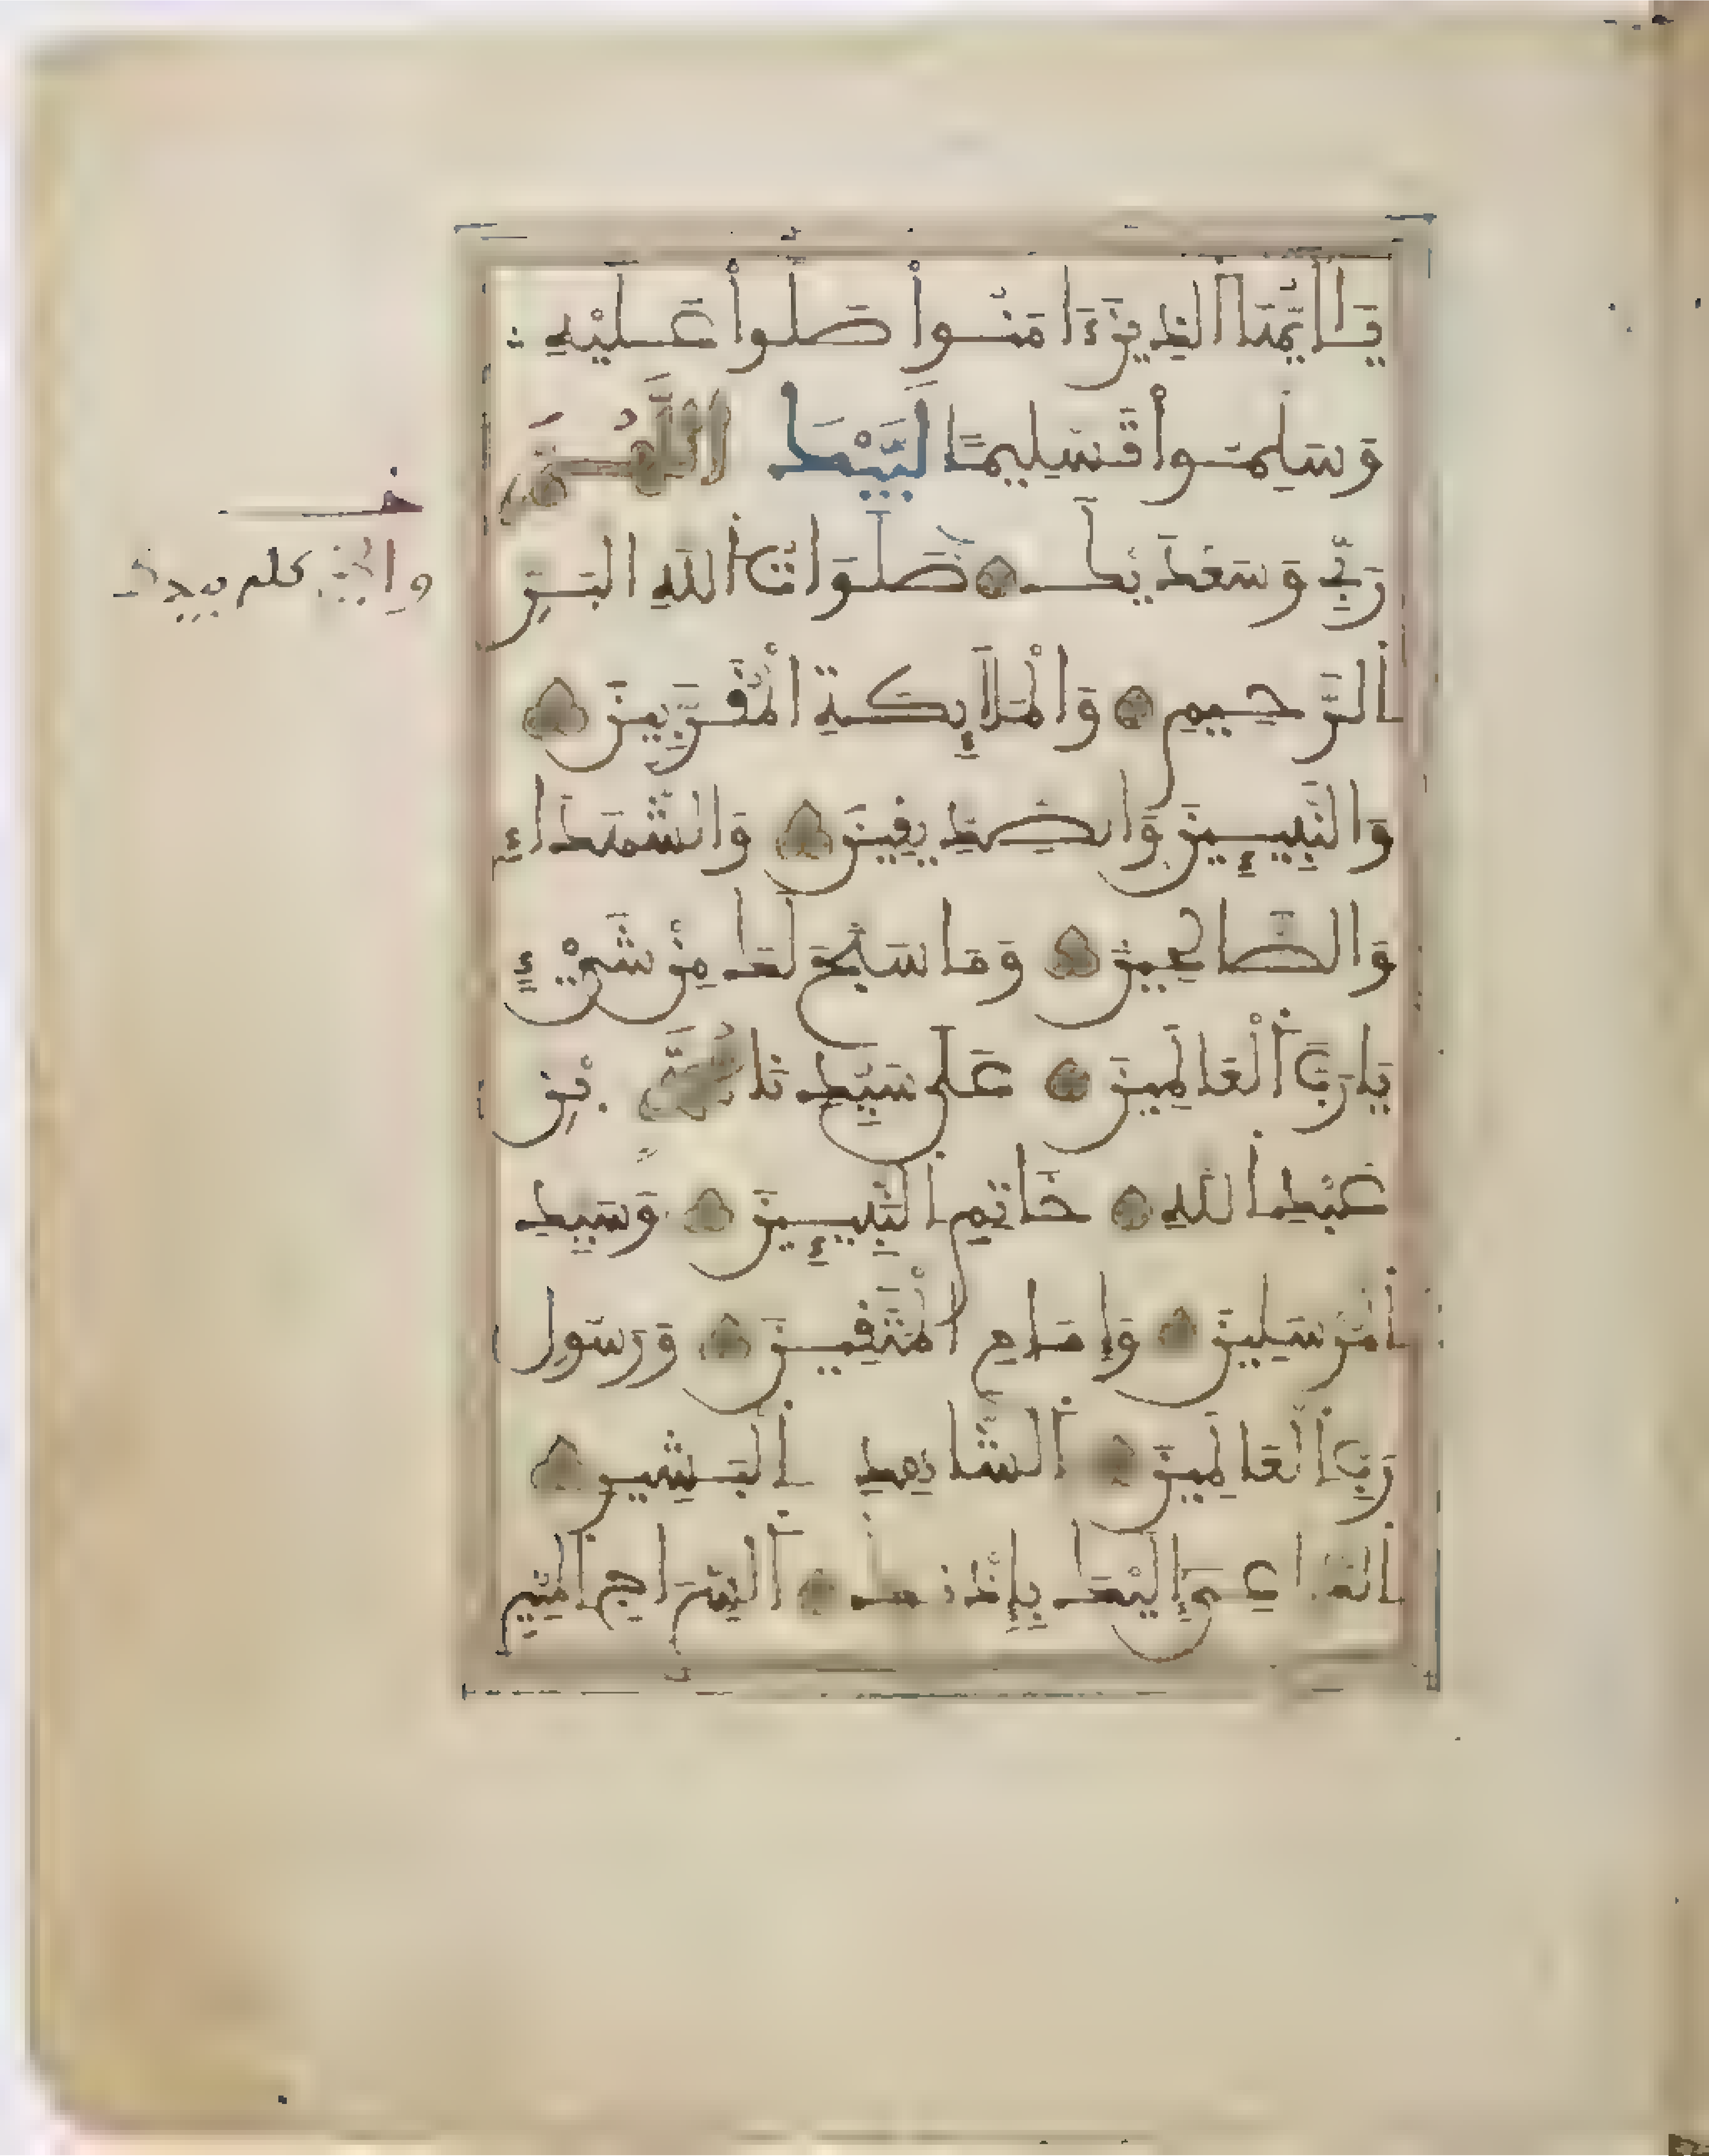 يَا أَيُّهَا الذِينَ ءَامَنُوا صَلُّوا عَلَيْهِ
وَسَلِّمُوا تَسْلِيمًا لَبَّيْكَ اللَّهُمَّ
رَبِّي وَسَعْدَيْكَ صَلَوَاتُ اللهِ البَرِّ
الرَّحِيمِ وَالْمَلَائِكَةِ الْمُقَرَّبِينَ
وَالنَّبِيئِينَ وَالصِّدِّيقِينَ وَالشُّهَدَاءِ
وَالصَّالِحِينَ وَمَا سَبَّحَ لَكَ مِنْ شَيْءٍ
يَا رَبَّ الْعَالَمِينَ عَلَى سَيِّدِنَا مُحَمَّدٍ بْنِ
عَبْدِ اللهِ خَاتِمِ النَّبِيئِينَ وَسَيِّدِ
الْمُرْسَلِينَ وَإِمَامِ الْمُتَّقِينَ وَرَسُولِ
رَبِّ الْعَالَمِينَ الشَّاهِدِ الْبَشِيرِ
الدَّاعِي إِلَيْكَ بِإِذْنِكَ السِّرَاجِ الْمُنِيرِ
والخير كله بيديك